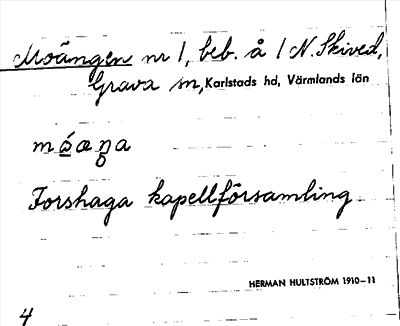 Moängen nr 1, beb. å 1 N. Skived,
Grava sn, Karlstads hd, Värmlands län
Forshaga kapellförsamling
HERMAN HULTSTRÖM 1910–11
4